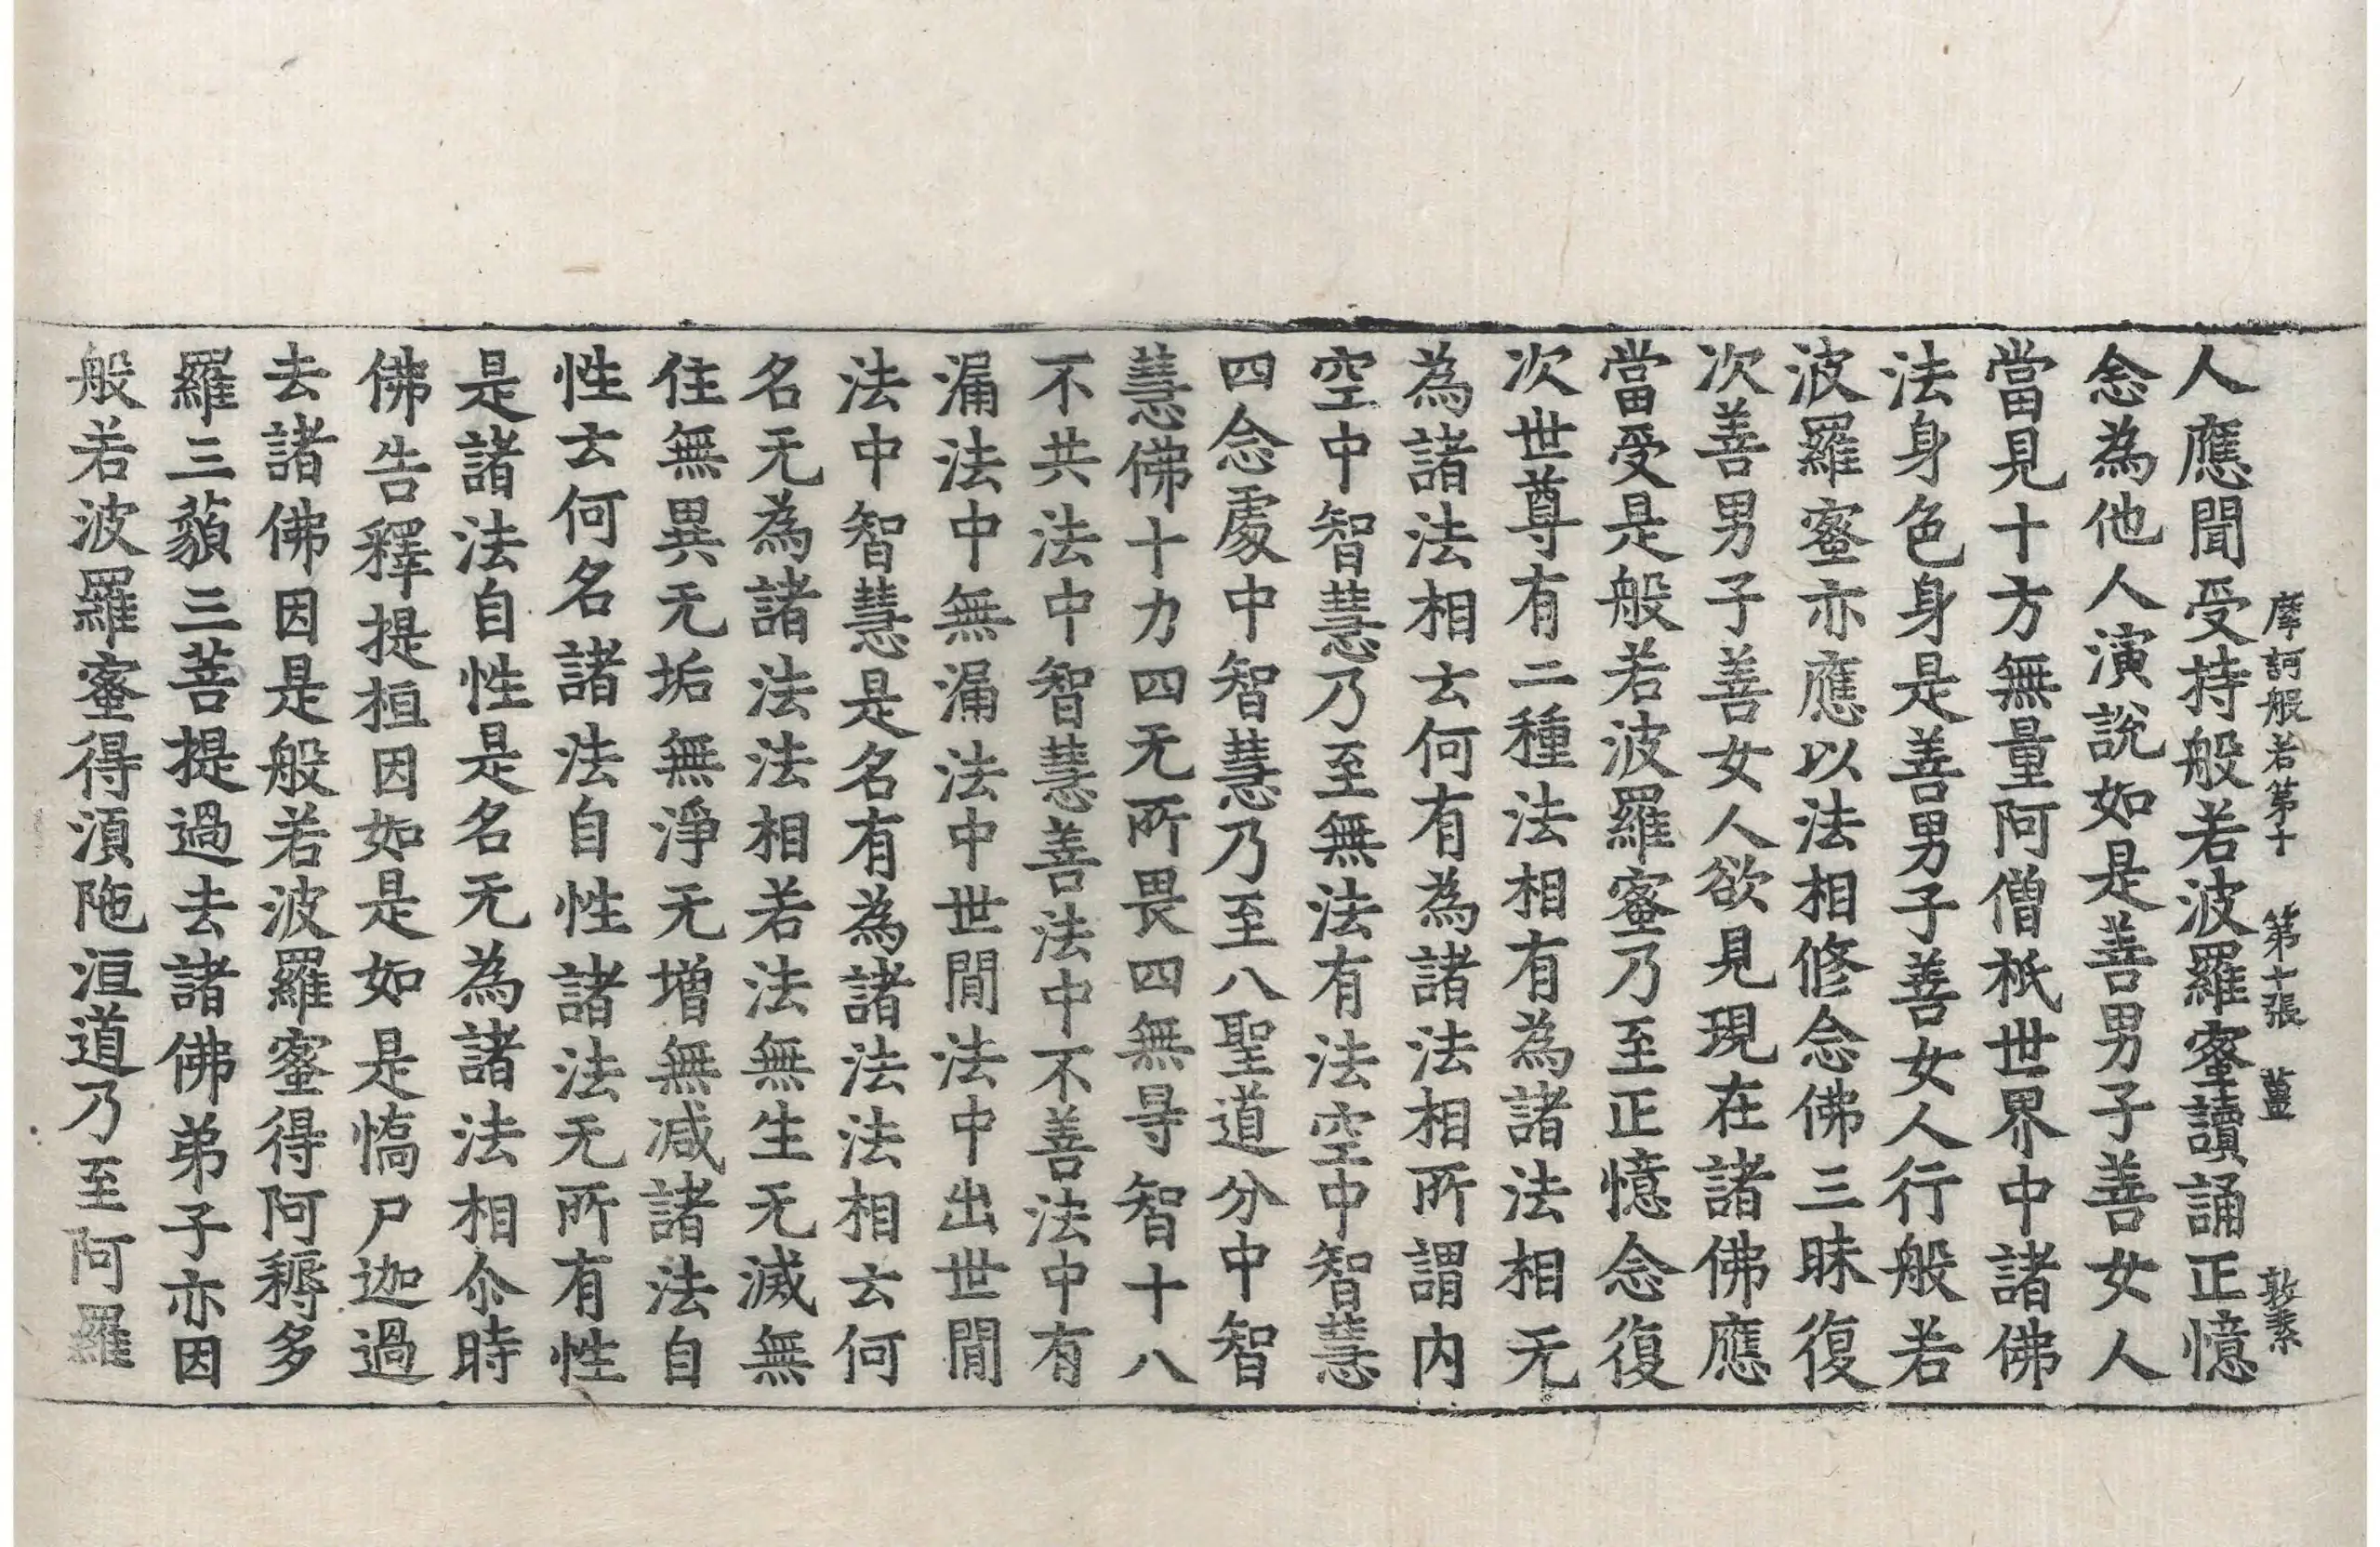 摩訶般若第十 第十張 薑 敦素
人應聞受持般若波羅蜜讀誦正憶
念為他人演說如是善男子善女人
當見十方無量阿僧祇世界中諸佛
法身色身是善男子善女人行般若
波羅蜜亦應以法相修念佛三昧復
次善男子善女人欲見現在諸佛應
當受是般若波羅蜜乃至正憶念復
次世尊有二種法相有為諸法相无
為諸法相云何有為諸法相所謂内
空中智慧乃至無法有法空中智慧
四念處中智慧乃至八聖道分中智
慧佛十力四无所畏四無㝵智十八
不共法中智慧善法中不善法中有
漏法中無漏法中世閒法中出世閒
法中智慧是名有為諸法法相云何
名无為諸法法相若法無生无滅無
住無異无垢無淨无增無减諸法自
性云何名諸法自性諸法无所有性
是諸法自性是名无為諸法相尒時
佛告釋提桓因如是如是憍尸迦過
去諸佛因是般若波羅蜜得阿耨多
羅三藐三菩提過去諸佛弟子亦因
般若波羅蜜得湏陁洹道乃至阿羅